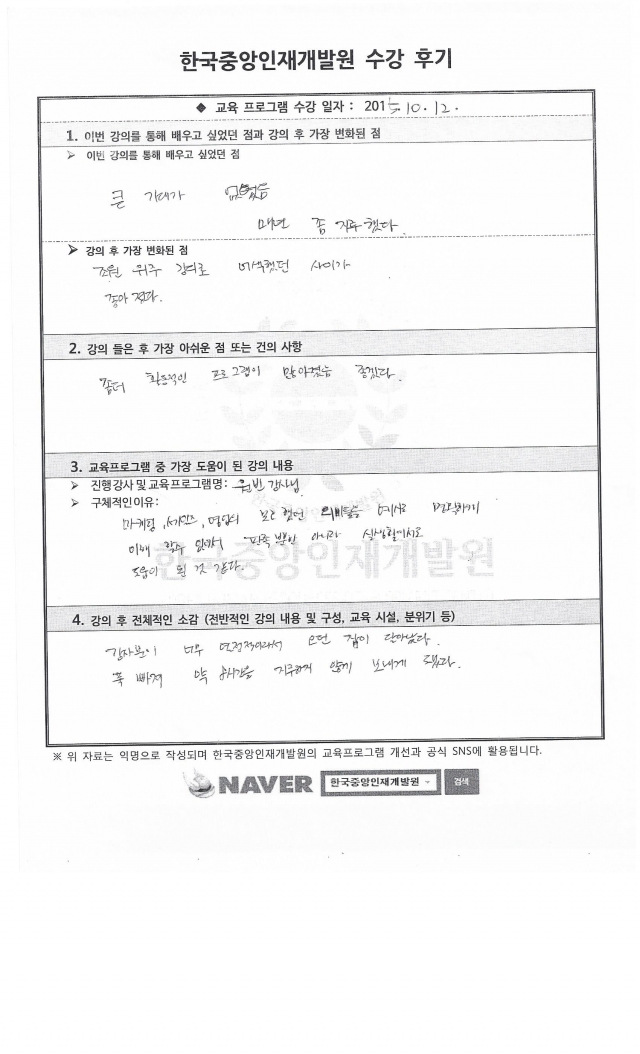 한국중앙인재개발원 수강 후기
◆ 교육 프로그램 수강 일자 : 2015. 10. 12.
1. 이번 강의를 통해 배우고 싶었던 점과 강의 후 가장 변화된 점
➢ 이번 강의를 통해 배우고 싶었던 점
큰 기대가 없었음
매번 좀 지루했다.
➢ 강의 후 가장 변화된 점
조원 위주 강의로 어색했던 사이가
좋아 졌다.
2. 강의 들은 후 가장 아쉬운 점 또는 건의 사항
좀더 활동적인 프로그램이 많아졌음 좋겠다.
3. 교육프로그램 중 가장 도움이 된 강의 내용
➢ 진행강사 및 교육프로그램명: 원빈 강사님
➢ 구체적인이유:
마케팅, 서비스,
이해 할수 있어서 뿐만 아니라 실생활에서도
도움이 될 것 같다.
4. 강의 후 전체적인 소감 (전반적인 강의 내용 및 구성, 교육 시설, 분위기 등)
강사분이 너무 열정적이라서 오던 잠이 달아났다.
푹 빠져 약 시간을 지루하지 않게 보내게 됐다.
한국중앙인재개발원
※ 위 자료는 익명으로 작성되며 한국중앙인재개발원의 교육프로그램 개선과 공식 SNS에 활용됩니다.
NAVER 한국중앙인재개발원 검색